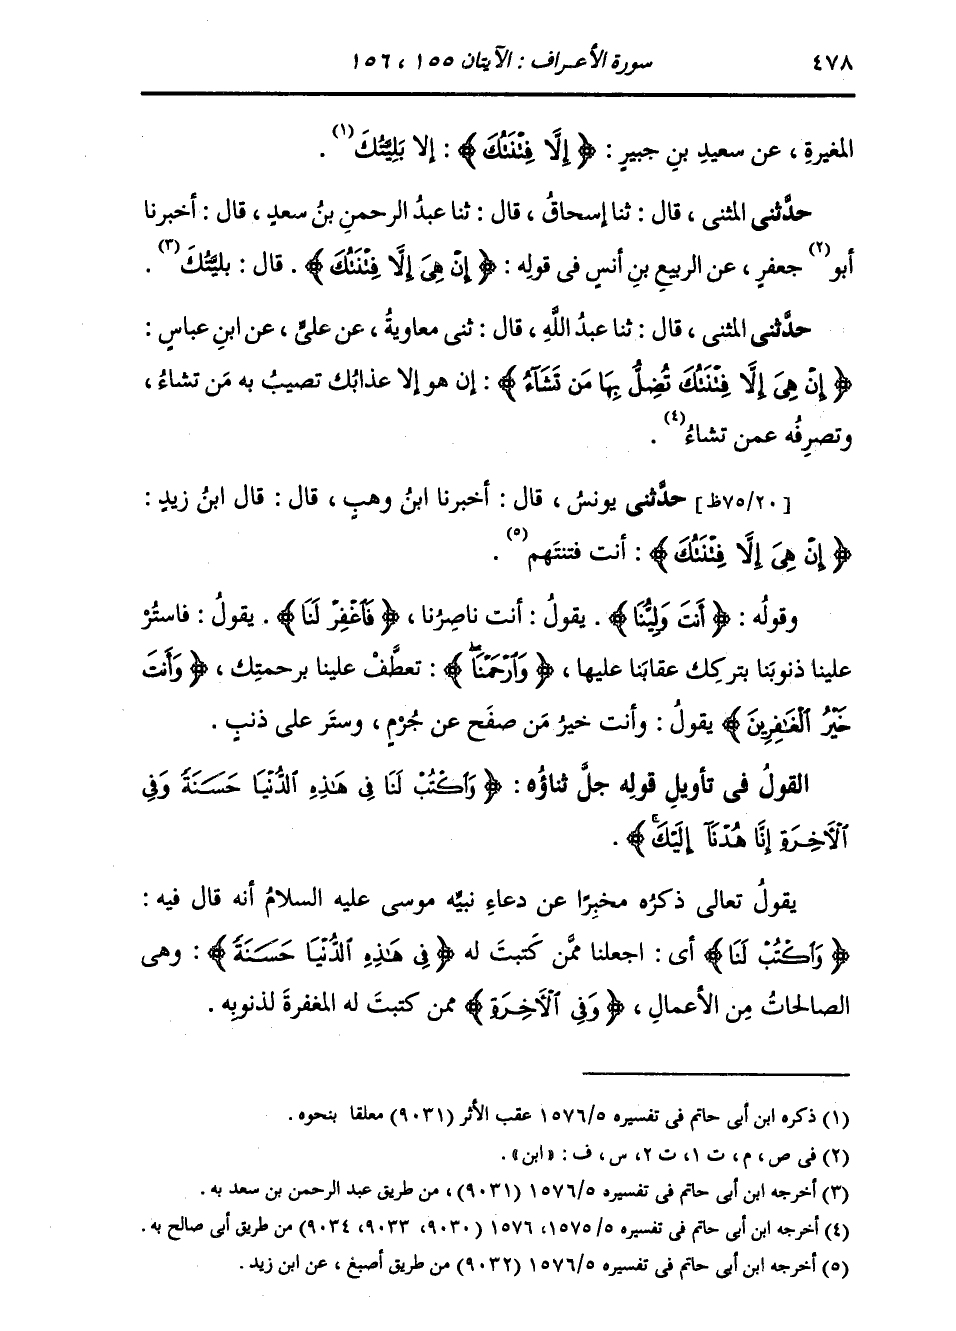 ٤٧٨ سورة الأعراف : الآيتان ١٥٥ ، ١٥٦
المغيرةِ ، عن سعيدِ بنِ جبيرٍ : ﴿ إِلَّا فِتْنَتُكَ ﴾ : إلا بَلِيَّتُكَ(١) .
حدَّثني المثنى ، قال : ثنا إسحاقُ ، قال : ثنا عبدُ الرحمنِ بنُ سعدٍ ، قال : أخبرنا
أبو(٢) جعفرٍ ، عن الربيعِ بنِ أنسٍ فى قولِه : ﴿ إِنْ هِىَ إِلَّا فِتْنَتُكَ ﴾ . قال : بليَّتُكَ(٣) .
حدَّثني المثنى ، قال : ثنا عبدُ اللَّهِ ، قال : ثنى معاويةُ ، عن علىٍّ ، عن ابنِ عباسٍ :
﴿ إِنْ هِىَ إِلَّا فِتْنَتُكَ تُضِلُّ بِهَا مَن تَشَآءُ ﴾ : إن هو إلا عذابُك تصيبُ به مَن تشاءُ ،
وتصرِفُه عمن تشاءُ(٤) .
[٧٥/٢٠ظ] حدَّثني يونسُ ، قال : أخبرنا ابنُ وهبٍ ، قال : قال ابنُ زيدٍ :
﴿ إِنْ هِىَ إِلَّا فِتْنَتُكَ ﴾ : أنت فتنتَهم(٥) .
وقولُه : ﴿ أَنتَ وَلِيُّنَا ﴾ . يقولُ : أنت ناصِرُنا ، ﴿ فَٱغْفِرْ لَنَا ﴾ . يقولُ : فاستُرْ
علينا ذنوبَنا بتركِك عقابَنا عليها ، ﴿ وَٱرْحَمْنَا ۖ ﴾ : تعطَّفْ علينا برحمتِك ، ﴿ وَأَنتَ
خَيْرُ ٱلْغَـٰفِرِينَ ﴾ يقولُ : وأنت خيرُ مَن صفَح عن جُرْمٍ ، وستَر على ذنبٍ .
القولُ فى تأويلِ قولِه جلَّ ثناؤُه : ﴿ وَٱكْتُبْ لَنَا فِى هَـٰذِهِ ٱلدُّنْيَا حَسَنَةً وَفِى
ٱلْأَخِرَةِ إِنَّا هُدْنَآ إِلَيْكَ ۚ ﴾ .
يقولُ تعالى ذكرُه مخبِرًا عن دعاءِ نبيِّه موسى عليه السلامُ أنه قال فيه :
﴿ وَٱكْتُبْ لَنَا ﴾ أى : اجعلنا ممَّن كَتبتَ له ﴿ فِى هَـٰذِهِ ٱلدُّنْيَا حَسَنَةً ﴾ : وهى
الصالحاتُ مِن الأعمالِ ، ﴿ وَفِى ٱلْأَخِرَةِ ﴾ ممن كتبتَ له المغفرةَ لذنوبِه .
(١) ذكره ابن أبى حاتم فى تفسيره ١٥٧٦/٥ عقب الأثر (٩٠٣١) معلقا بنحوه .
(٢) فى ص ، م ، ت ١، ت ٢، س ، ف : « ابن » .
(٣) أخرجه ابن أبى حاتم فى تفسيره ١٥٧٦/٥ (٩٠٣١) ، من طريق عبد الرحمن بن سعد به .
(٤) أخرجه ابن أبى حاتم فى تفسيره ٥/ ١٥٧٥، ١٥٧٦ (٩٠٣٠، ٩٠٣٣، ٩٠٣٤) من طريق أبى صالح به .
(٥) أخرجه ابن أبى حاتم فى تفسيره ١٥٧٦/٥ (٩٠٣٢) من طريق أصبغ ، عن ابن زيد .